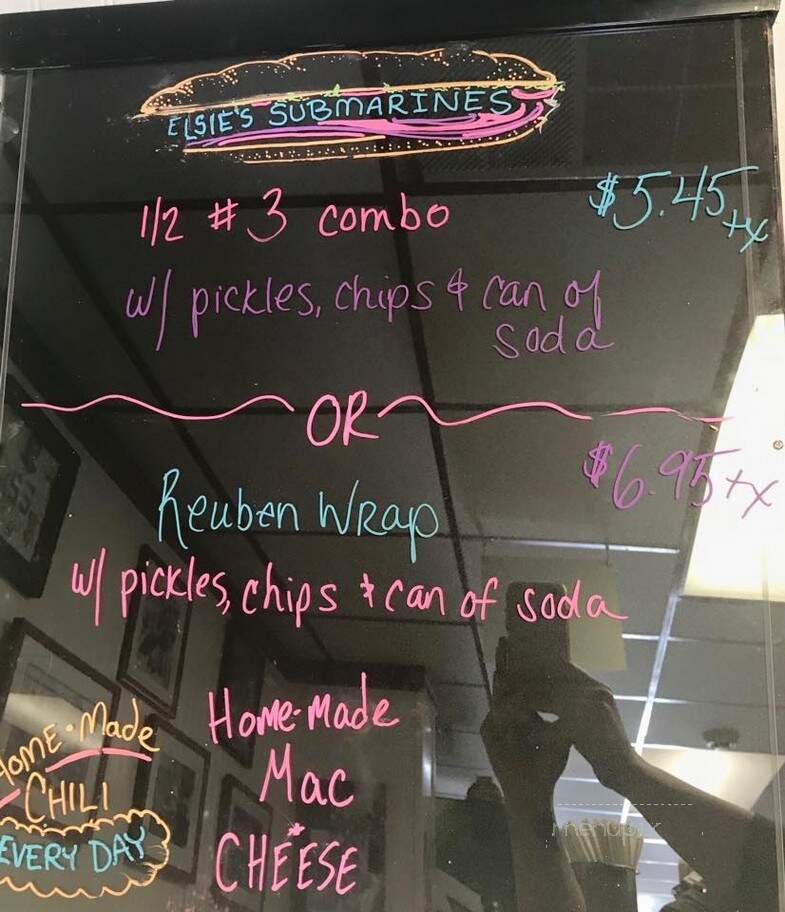 ELSIE'S SUBMARINES
1/2 # 3 combo $5.45 +x
w/ pickles, chips & can of
soda
OR
$6.95 +x
Reuben Wrap
w/ pickles, chips & can of soda
Home-Made
Mac
CHEESE
HOME-Made
CHILI
EVERY DAY